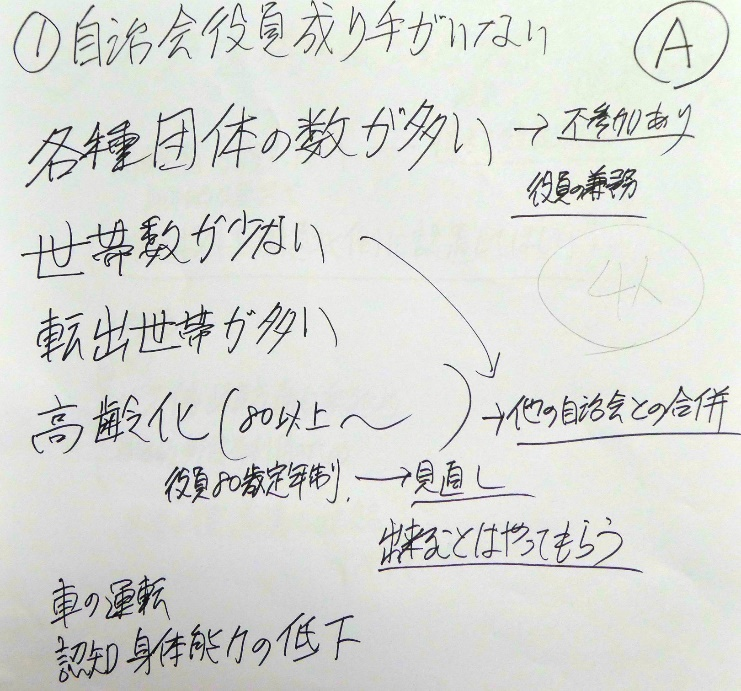 ① 自治会役員成り手がいない
A
各種団体の数が多い → 不参加あり
役員の兼務
世帯数が少ない
4人
転出世帯が多い
高齢化(80以上〜 ) → 他の自治会との合併
役員80歳定年制. → 見直し
出来ることはやってもらう
車の運転
認知身体能力の低下